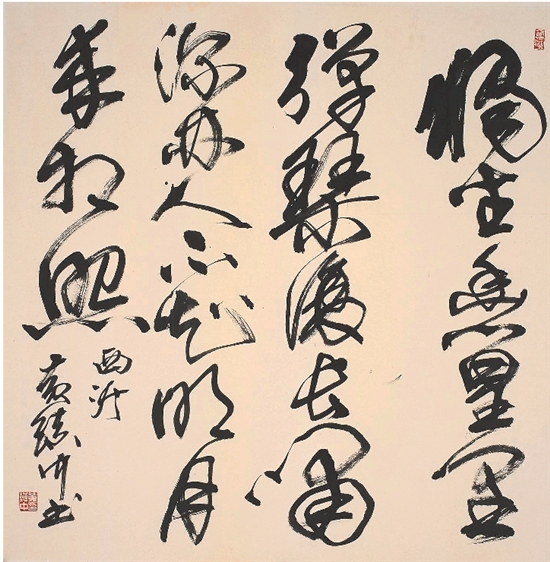 獨坐幽篁裏
彈琴復長嘯
深林人不知明月
來相照
西
黃 中書